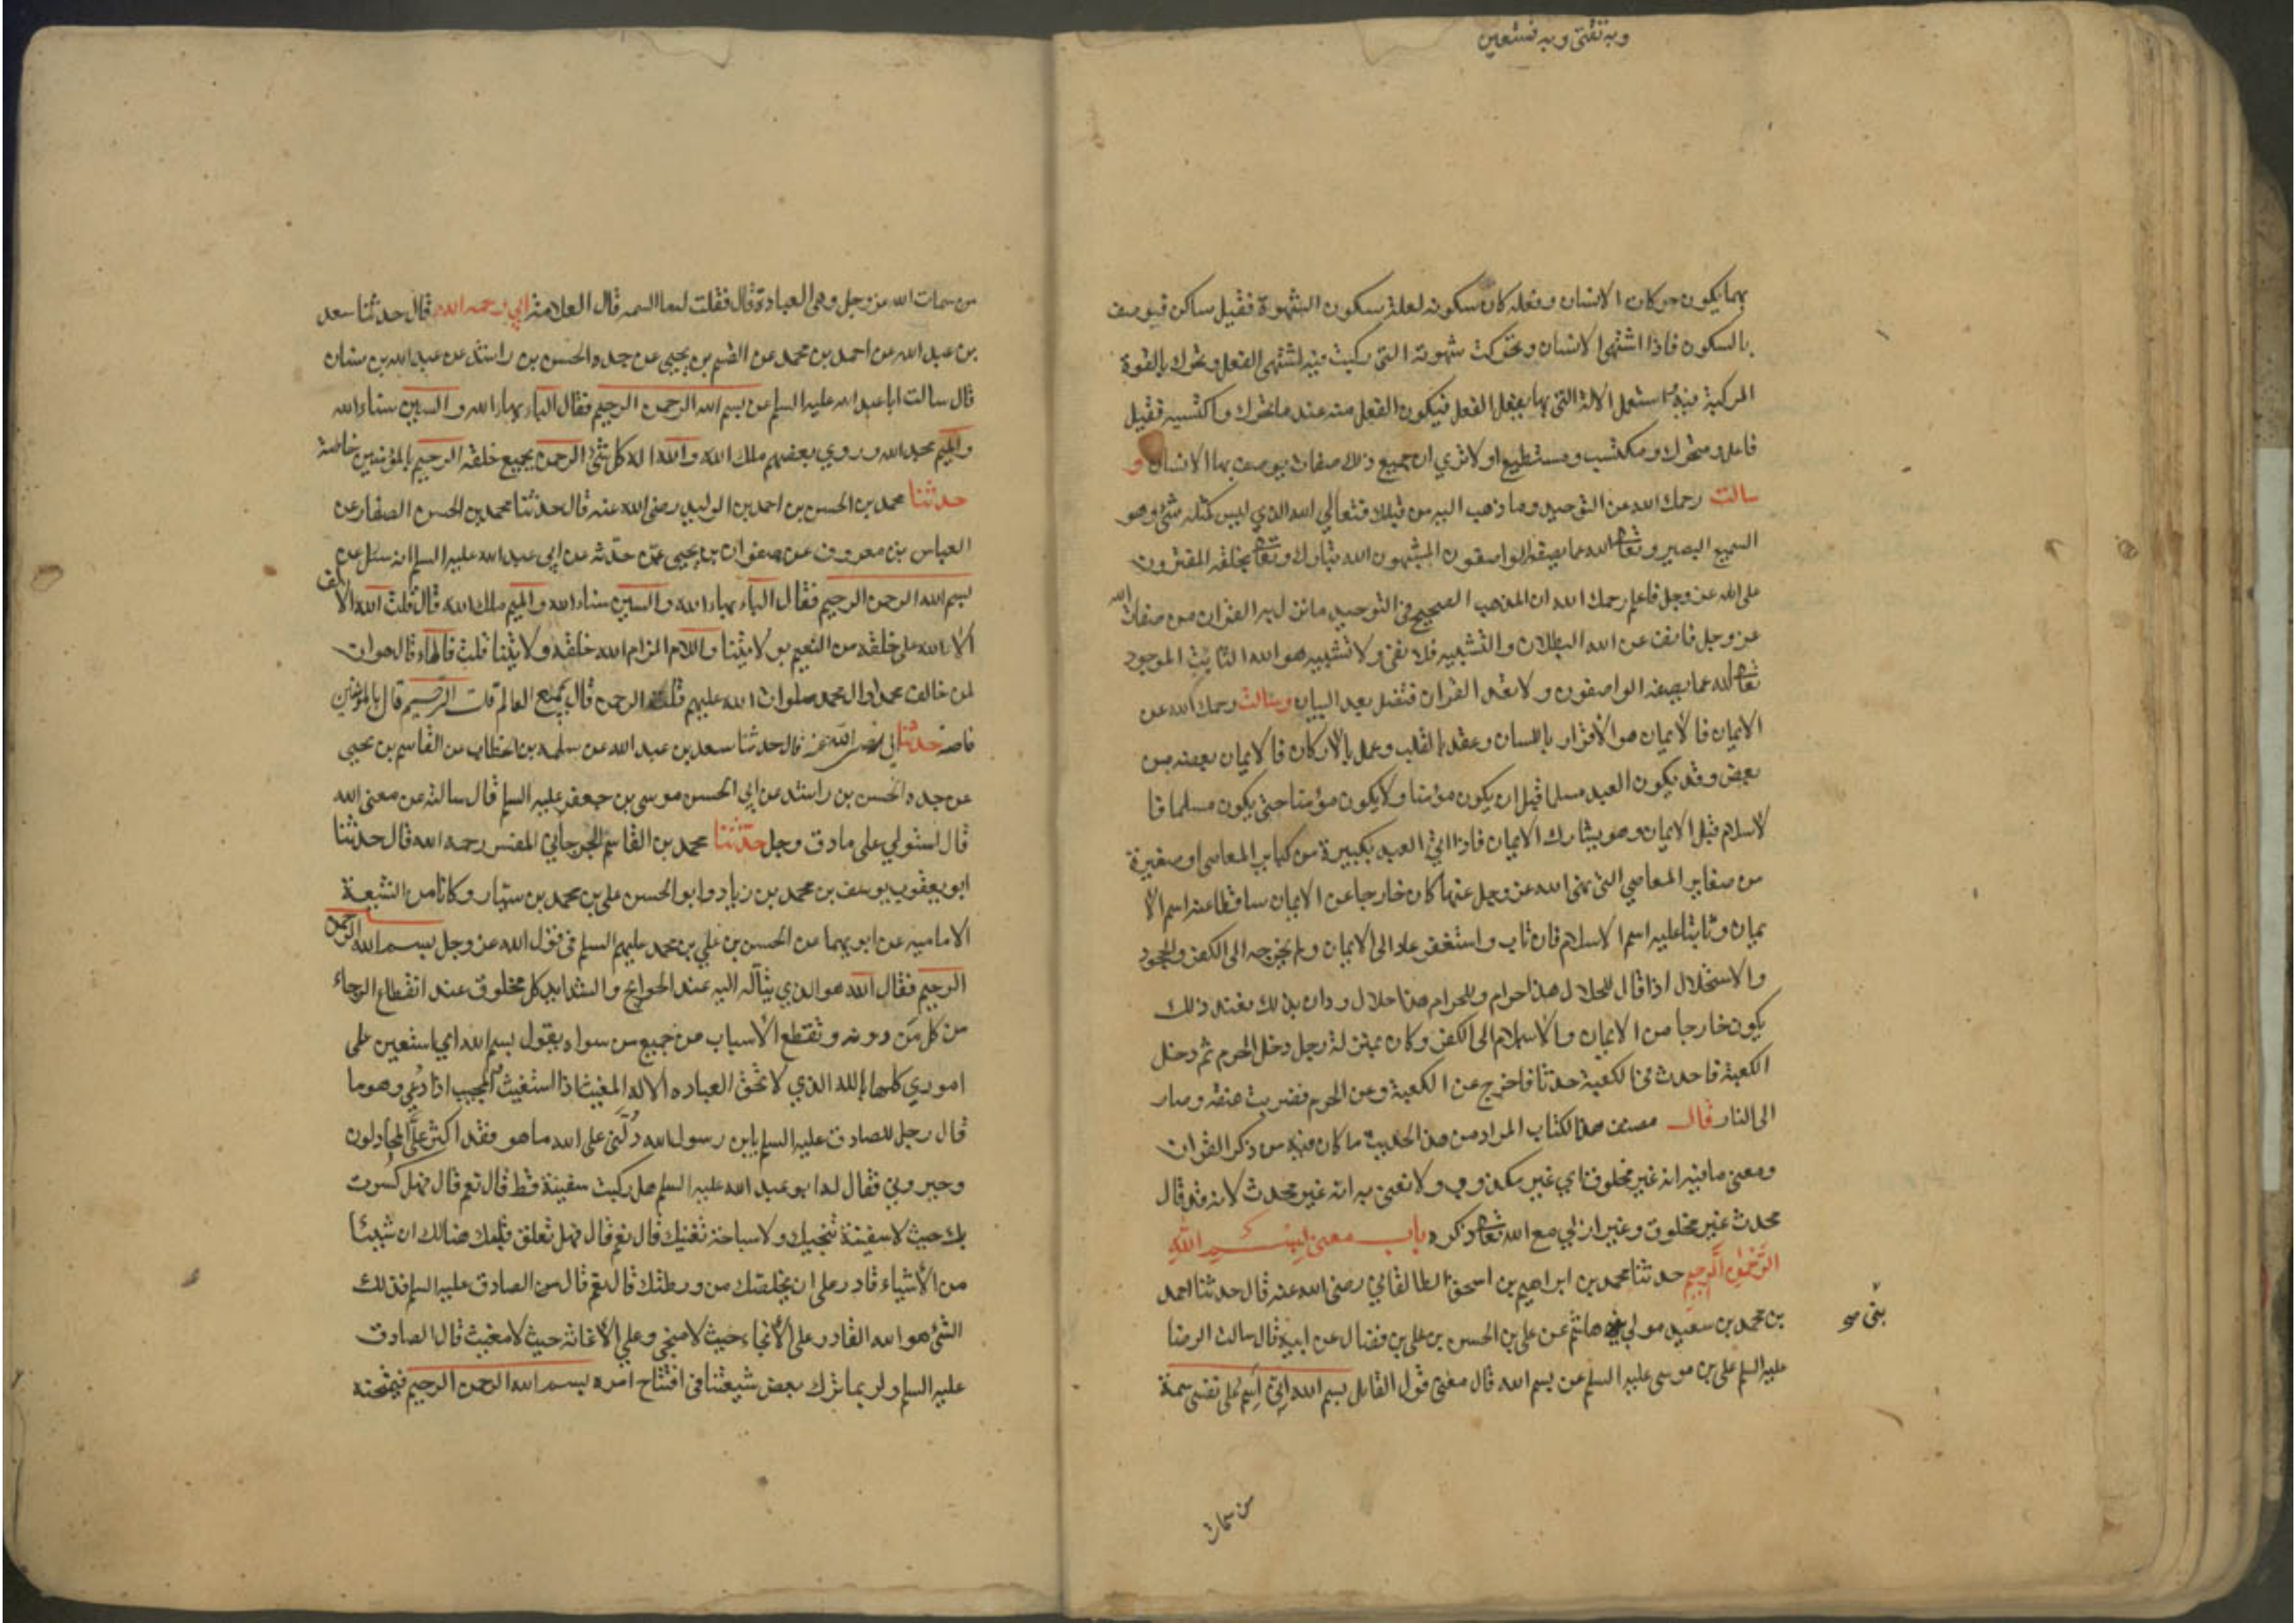 وبه نثقتى وبه نستعين
بهما يكون حركات الانسان وفعله كان سكونه لعلة سكون الشهوة فقيل ساكن فيوصف
بالسكون فاذا اشتهى الانسان وتحركت شهوته التى ركبت فيه اشتهى الفعل وتحرك بالقوة
المركبة فيه واستعمل الالة التى بها يفعل الفعل فيكون الفعل منه عند ما تحرك واكتسبه فقيل
فاعل ومتحرك ومكتسب ومستطيع او لا ترى ان جميع ذلك صفات يوصف بها الانسان و
سالت رحمك الله عن التوحيد وما ذهب اليه من قبلك فتعالى الله الذي ليس كمثله شئ وهو
السميع البصير وتعا الله عما يصفه الواصفون المشبهون الله تبارك وتعا بخلقه المفترون
على الله عز وجل فاعلم رحمك الله ان المذهب الصحيح فى التوحيد ما نزل به القران من صفات الله
عز وجل فانف عن الله البطلان والتشبيه فلا نفى ولا تشبيه هو الله الثابت الموجود
تعا الله عما يصفه الواصفون ولا تعد القران فتضل بعد البيان وسالت رحمك الله عن
الايمان فالايمان هو الاقرار باللسان وعقد بالقلب وعمل بالاركان فالايمان بعضه من
بعض وقد يكون العبد مسلما قبل ان يكون مؤمنا ولا يكون مؤمنا حتى يكون مسلما فا
لاسلام قبل الايمان وهو يشارك الايمان فاذا اتى العبد بكبيرة من كباير المعاصى او صغيرة
من صغاير المعاصي التى نهى الله عز وجل عنها كان خارجا عن الايمان ساقطا عنه اسم الا
يمان وثابتا عليه اسم الاسلام فان تاب واستغفر عاد الى الايمان ولم يخرجه الى الكفر والجحود
والاستحلال اذا قال للحلال هذا حرام وللحرام هذا حلال ودان بذلك فعنده ذلك
يكون خارجا من الايمان والاسلام الى الكفر وكان بمنزلة رجل دخل الحرم ثم دخل
الكعبة فاحدث فى الكعبة حدثا فاخرج عن الكعبة وعن الحرم فضربت عنقه وصار
الى النار قال مصنف هذا الكتاب المراد من هذا الحديث ما كان فيه من ذكر القران
ومعنى ما فيه انه غير مخلوق اي غير مكذوب ولا نعنى به انه غير محدث لانه قد قال
محدث غير مخلوق وغير ازلي مع الله تعا ذكره باب معنى بسم الله
الرحمن الرحيم حدثنا محمد بن ابراهيم بن اسحق الطالقاني رضى الله عنه قال حدثنا احمد
بن محمد بن سعيد مولي هاشم عن على بن الحسن بن على بن فضال عن ابيه قال سالت الرضا
بنى
عليه السلم على بن موسى عليه السلم عن بسم الله قال معنى قول القايل بسم الله اي اسم على نفسى سمة
من سمات
من سمات الله عز وجل وهى العبادة قال فقلت له ما السمه قال العلامة ابي رحمه الله قال حدثنا سعد
بن عبد الله عن احمد بن محمد عن القسم بن يحيى عن جده الحسن بن راشد عن عبد الله بن سنان
قال سالت ابا عبد الله عليه السلم عن بسم الله الرحمن الرحيم فقال الباء بهاء الله والسين سناء الله
والميم مجد الله وروي بعضهم ملك الله والله اله كل شئ الرحمن بجميع خلقه الرحيم بالمؤمنين خاصة
حدثنا محمد بن الحسن بن احمد بن الوليد رضى الله عنه قال حدثنا محمد بن الحسن الصفار عن
العباس بن معروف عن صفوان بن يحيى عمن حدثه عن ابى عبد الله عليه السلم انه سئل عن
بسم الله الرحمن الرحيم فقال الباء بهاء الله والسين سناء الله والميم ملك الله قال قلت الله الالف
الاء الله على خلقه من النعيم بولايتنا واللام الزام الله خلقه ولايتنا قلت فالهاء قال هوان
لمن خالف محمد وال محمد صلوات الله عليهم قلت الرحمن قال بجميع العالم قلت الرحيم قال بالمؤمنين
خاصه حدثنا ابي رضى الله عنه قال حدثنا سعد بن عبد الله عن سلمه بن الخطاب عن القاسم بن يحيى
عن جده الحسن بن راشد عن ابي الحسن موسى بن جعفر عليه السلم قال سالته عن معنى الله
قال استولي على مادق وجل حدثنا محمد بن القاسم الجرجاني المفسر رحمه الله قال حدثنا
ابو يعقوب يوسف بن محمد بن زياد وابو الحسن على بن محمد بن سيار وكانا من الشيعة
الاماميه عن ابويهما عن الحسن بن علي بن محمد عليهم السلم فى قول الله عز وجل بسم الله الرحمن
الرحيم فقال الله هو الذي يتأله اليه عند الحوايج والشدايد كل مخلوق عند انقطاع الرجاء
من كل من دونه وتقطع الأسباب من جميع من سواه يقول بسم الله اي استعين على
اموري كلها بالله الذي لا تحق العباده الا له المغيث اذا استغيث والمجيب اذا دعي وهو ما
قال رجل للصادق عليه السلم يابن رسول الله دلنى على الله ما هو فقد اكثر على المجادلون
وحيروني فقال له ابو عبد الله عليه السلم هل ركبت سفينة قط قال نعم قال فهل كسرت
بك حيث لا سفينة تنجيك ولا سباحة تغنيك قال نعم قال فهل تعلق قلبك هنالك ان شيئا
من الأشياء قادر على ان يخلصك من ورطتك قال نعم قال من الصادق عليه السلم فذلك
الشئ هو الله القادر على الأنجاء حيث لا منجي وعلي الاغاثة حيث لا مغيث قال الصادق
عليه السلم ولربما ترك بعض شيعتنا فى افتتاح امره بسم الله الرحمن الرحيم فيمتحنه